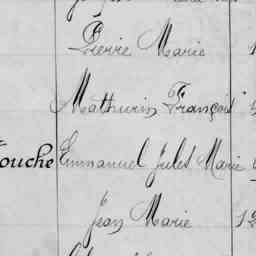 Pierre Marie
Mathurin François
ouche Emmanuel Jules Marie
Jean Marie